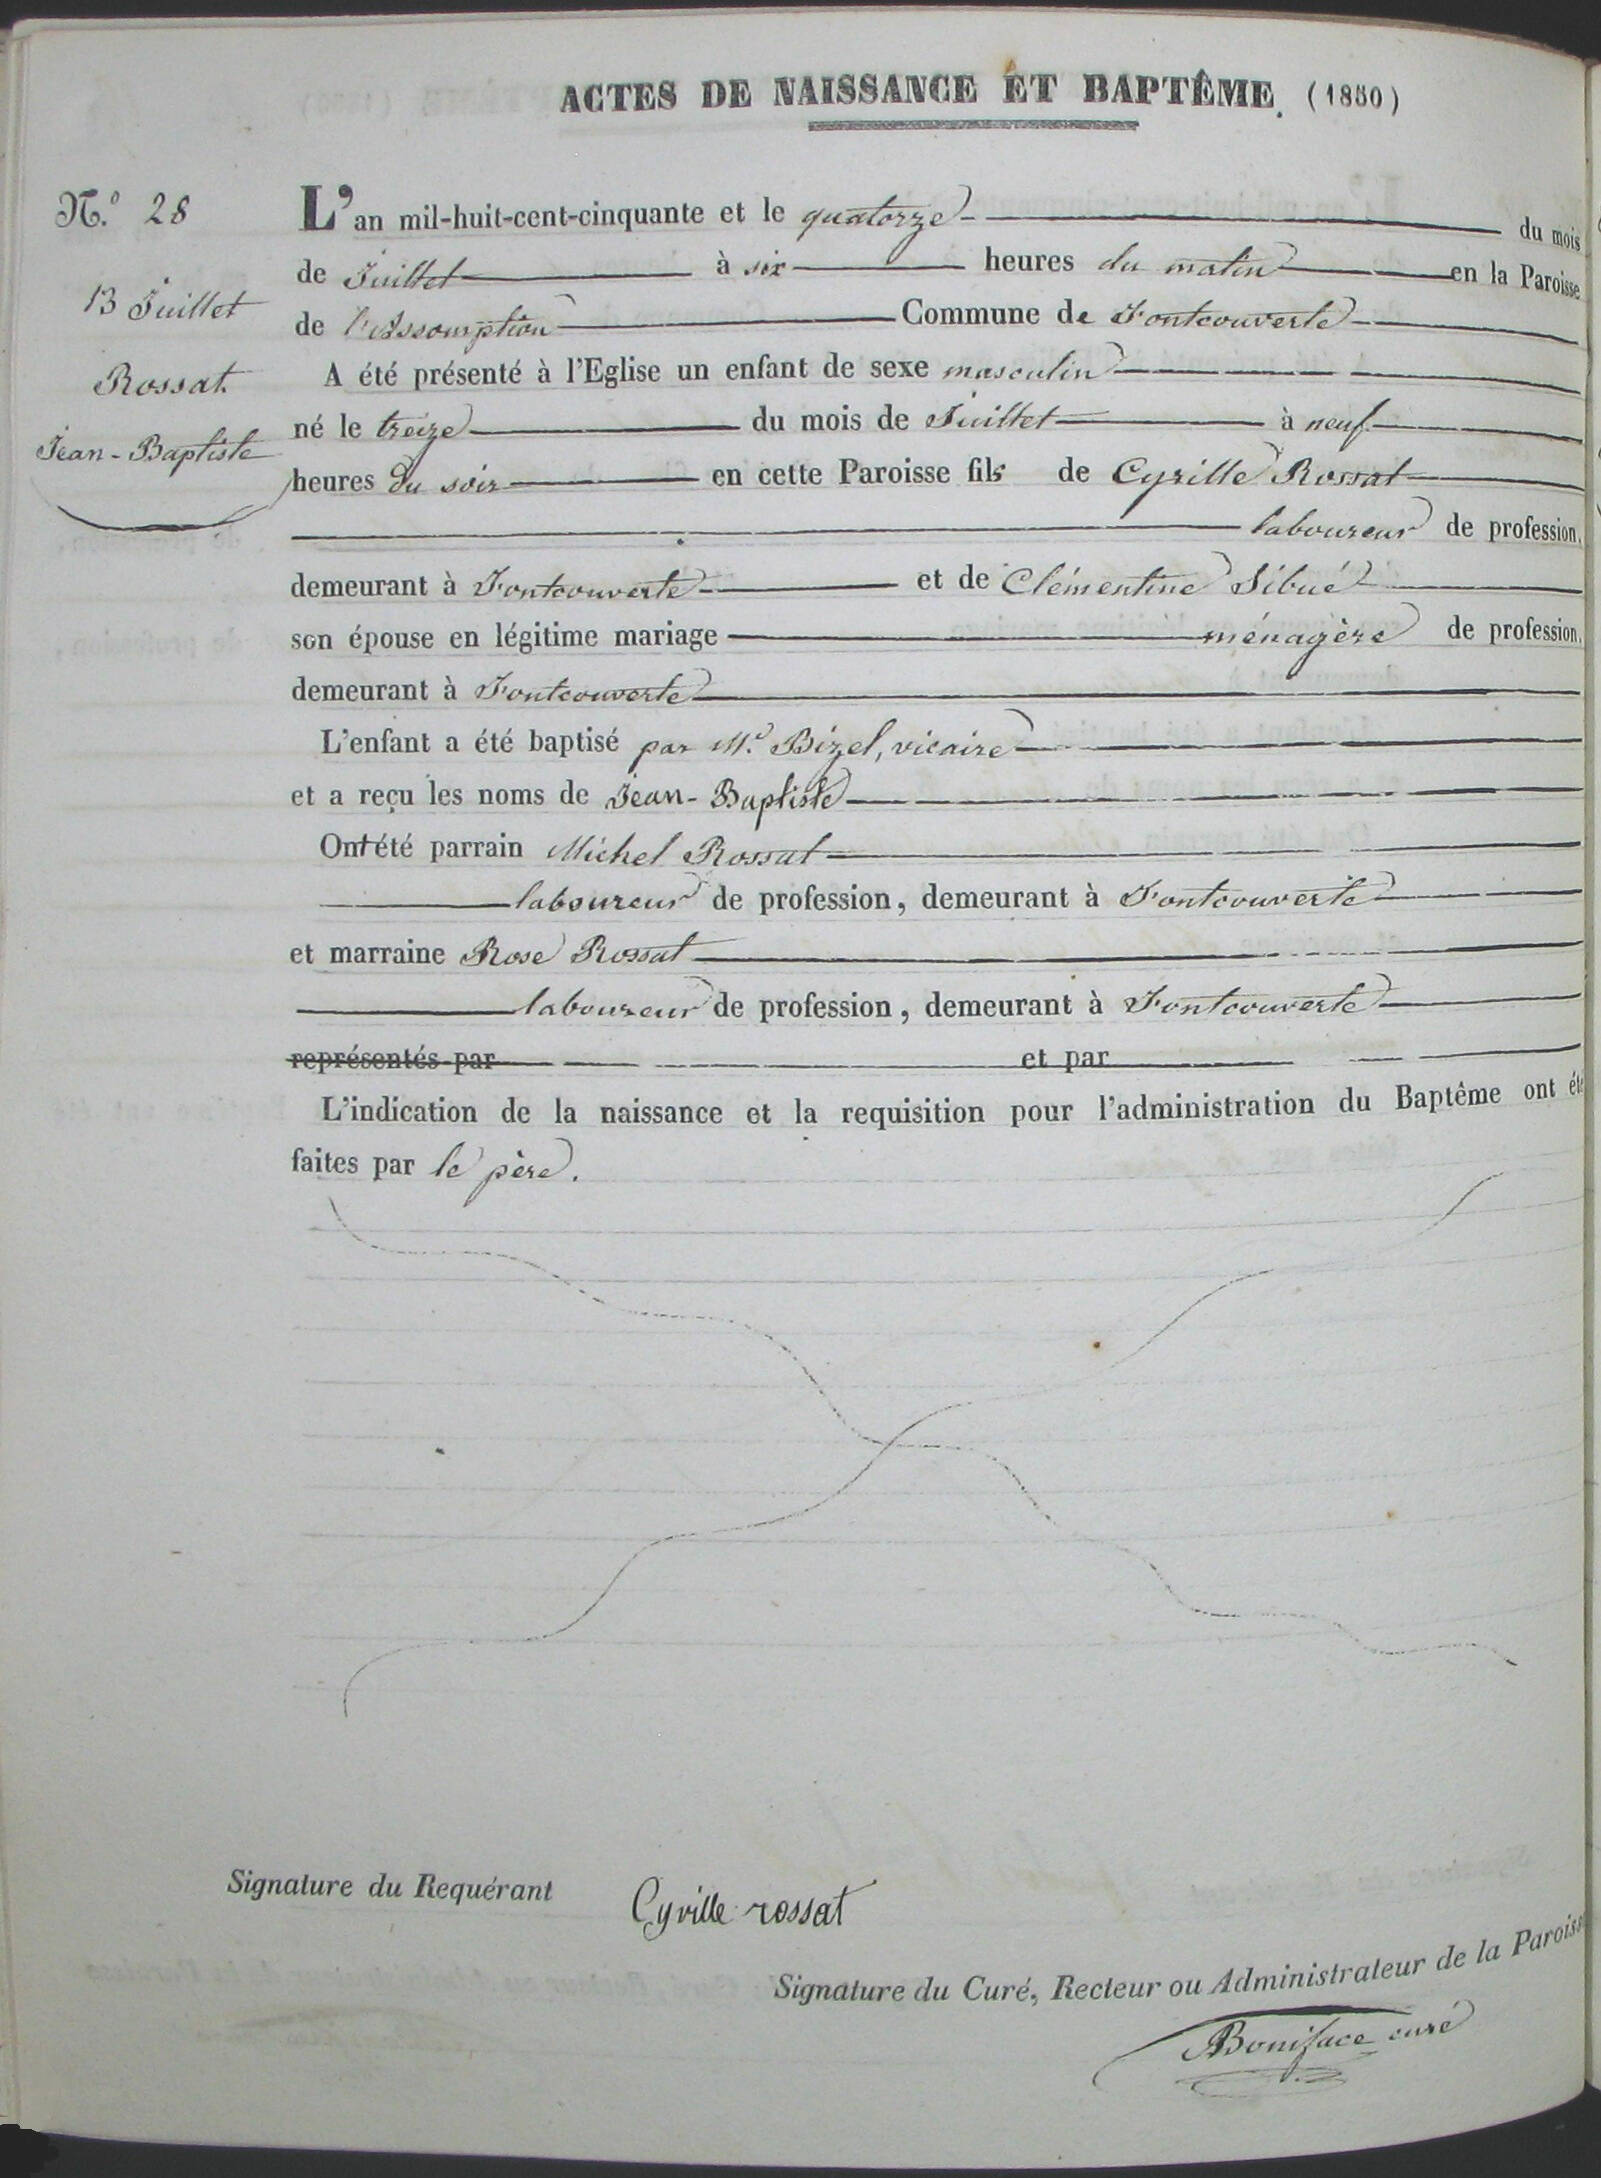 ACTES DE NAISSANCE ET BAPTÊME. (1850)
N.º 28
13 Juillet
Rossat.
Jean-Baptiste
L'an mil-huit-cent-cinquante et le quatorze du mois
de Juillet à six heures du matin en la Paroisse
de l'Assomption Commune de Fontcouverte
A été présenté à l'Eglise un enfant de sexe masculin
né le treize du mois de Juillet à neuf
heures du soir en cette Paroisse fils de Cyrille Rossat
laboureur de profession,
demeurant à Fontcouverte et de Clémentine Sibué
son épouse en légitime mariage ménagère de profession,
demeurant à Fontcouverte
L'enfant a été baptisé par Mr. Bizel, vicaire
et a reçu les noms de Jean-Baptiste
Ont été parrain Michel Rossat
laboureur de profession, demeurant à Fontcouverte
et marraine Rose Rossat
laboureur de profession, demeurant à Fontcouverte
représentés par et par
L'indication de la naissance et la requisition pour l'administration du Baptême ont été
faites par le père.
Signature du Requérant Cyrille rossat
Signature du Curé, Recteur ou Administrateur de la Paroisse
Boniface curé